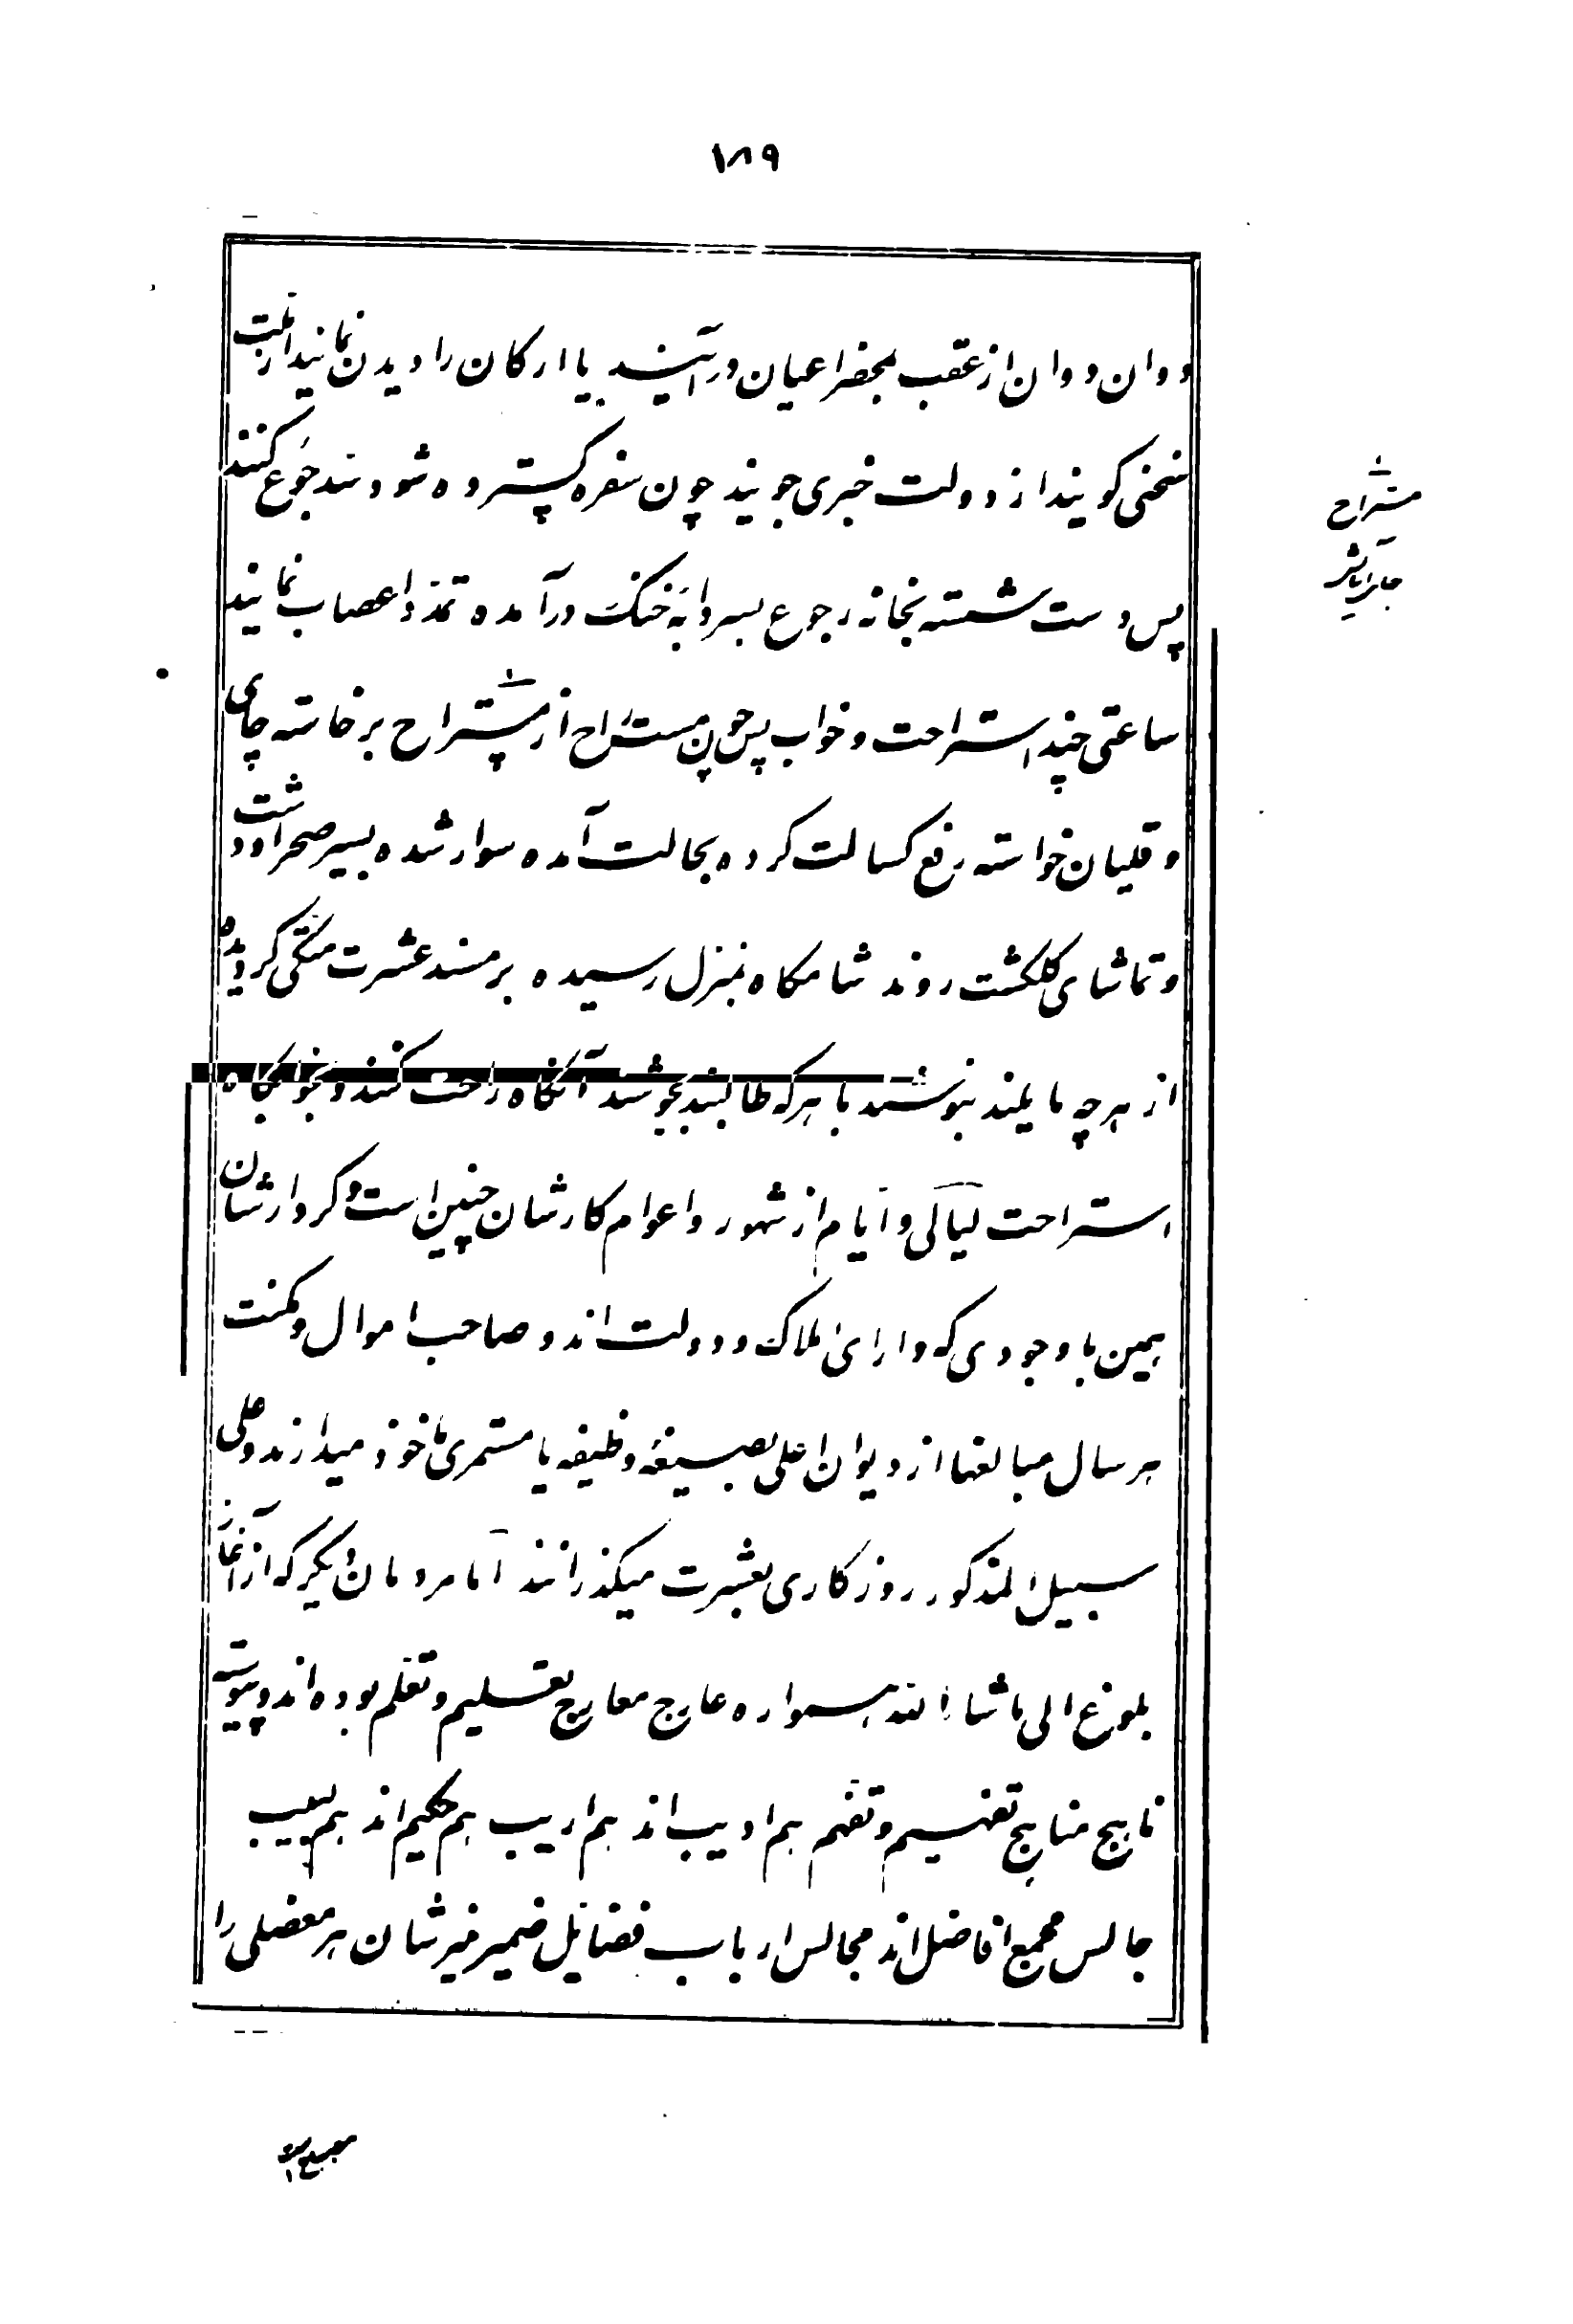 ۱۸۹
دوان دوان از عقب بمحضر اعیان درآیند یا ارکان را دیدن نمایند از ملت
سخنی گویند از دولت خبری جویند چون سفره گسترده شود سد جوع کنند
پس دست شسته بخانه رجوع بسردابهٔ خنک درآمده تمدد اعصاب نمایند
ساعتی چند استراحت و خواب پس چون مستراح از مستراح برخاسته چای
و قلیان خواسته رفع کسالت کرده بحالت آمده سوار شده بسیر صحرا و دشت
و تماشای گلگشت روند شامگاه بمنزل رسیده بر مسند عشرت متکی گردیده
از هرچه مایلند بنوشند با هرکه طالبند بجوشند آنگاه راحت کنند و بخوابگاه
استراحت لیالی و ایام از شهور و اعوام کارشان چنین است و کردارشان
همین با وجودی که دارای املاک و دولت اند و صاحب اموال و مکنت
هر سال مبالغها از دیوان اعلی بصیغهٔ وظیفه یا مستمری ماخوذ میدارند و علی
سبیل المذکور روزگاری بعشرت میگذرانند اما مردمان دیگر که از آغاز
بلوغ الی ماشاء الله همواره عارج معارج تعلیم و تعلم بوده اند و پیوسته
ناهج مناهج تفهیم و تفهم هم ادیب اند هم اریب هم حکیم اند هم لبیب
جالس مجمع افاضل اند مجالس ارباب فضایل ضمیر منیرشان هر معضلی را
مستراح